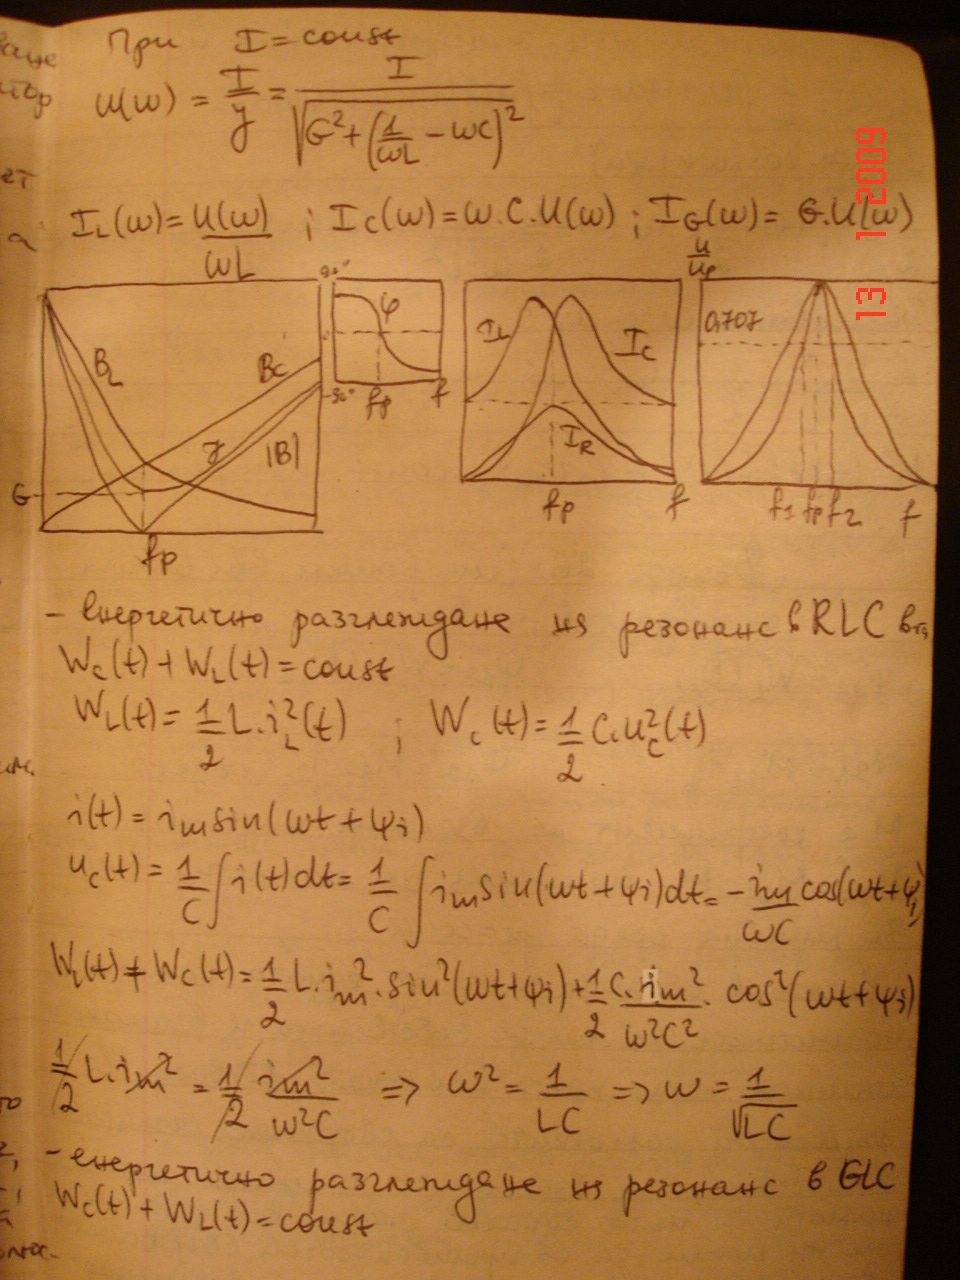 При I = const
U(ω) = I/y = I/√(G² + (1/ωL − ωC)²)
I_L(ω) = U(ω)/ωL ; I_C(ω) = ω.C.U(ω) ; I_G(ω) = G.U(ω)
13 1 2009
B_L B_C y |B| G fp
90° φ -90° fp f
I_L I_C I_R fp f
U/Up 0,707 f1 fp f2 f
- енергетично разглеждане на резонанс в RLC
W_C(t) + W_L(t) = const
W_L(t) = 1/2 L.i_L²(t) ; W_C(t) = 1/2 C.u_C²(t)
i(t) = i_m sin(ωt + ψi)
u_C(t) = 1/C ∫ i(t)dt = 1/C ∫ i_m sin(ωt + ψi)dt = − i_m/ωC cos(ωt + ψi)
W_L(t) + W_C(t) = 1/2 L.i_m².sin²(ωt + ψi) + 1/2 C.i_m²/ω²C² . cos²(ωt + ψi)
1/2 L.i_m² = 1/2 i_m²/ω²C => ω² = 1/LC => ω = 1/√LC
- енергетично разглеждане на резонанс в GLC
W_C(t) + W_L(t) = const